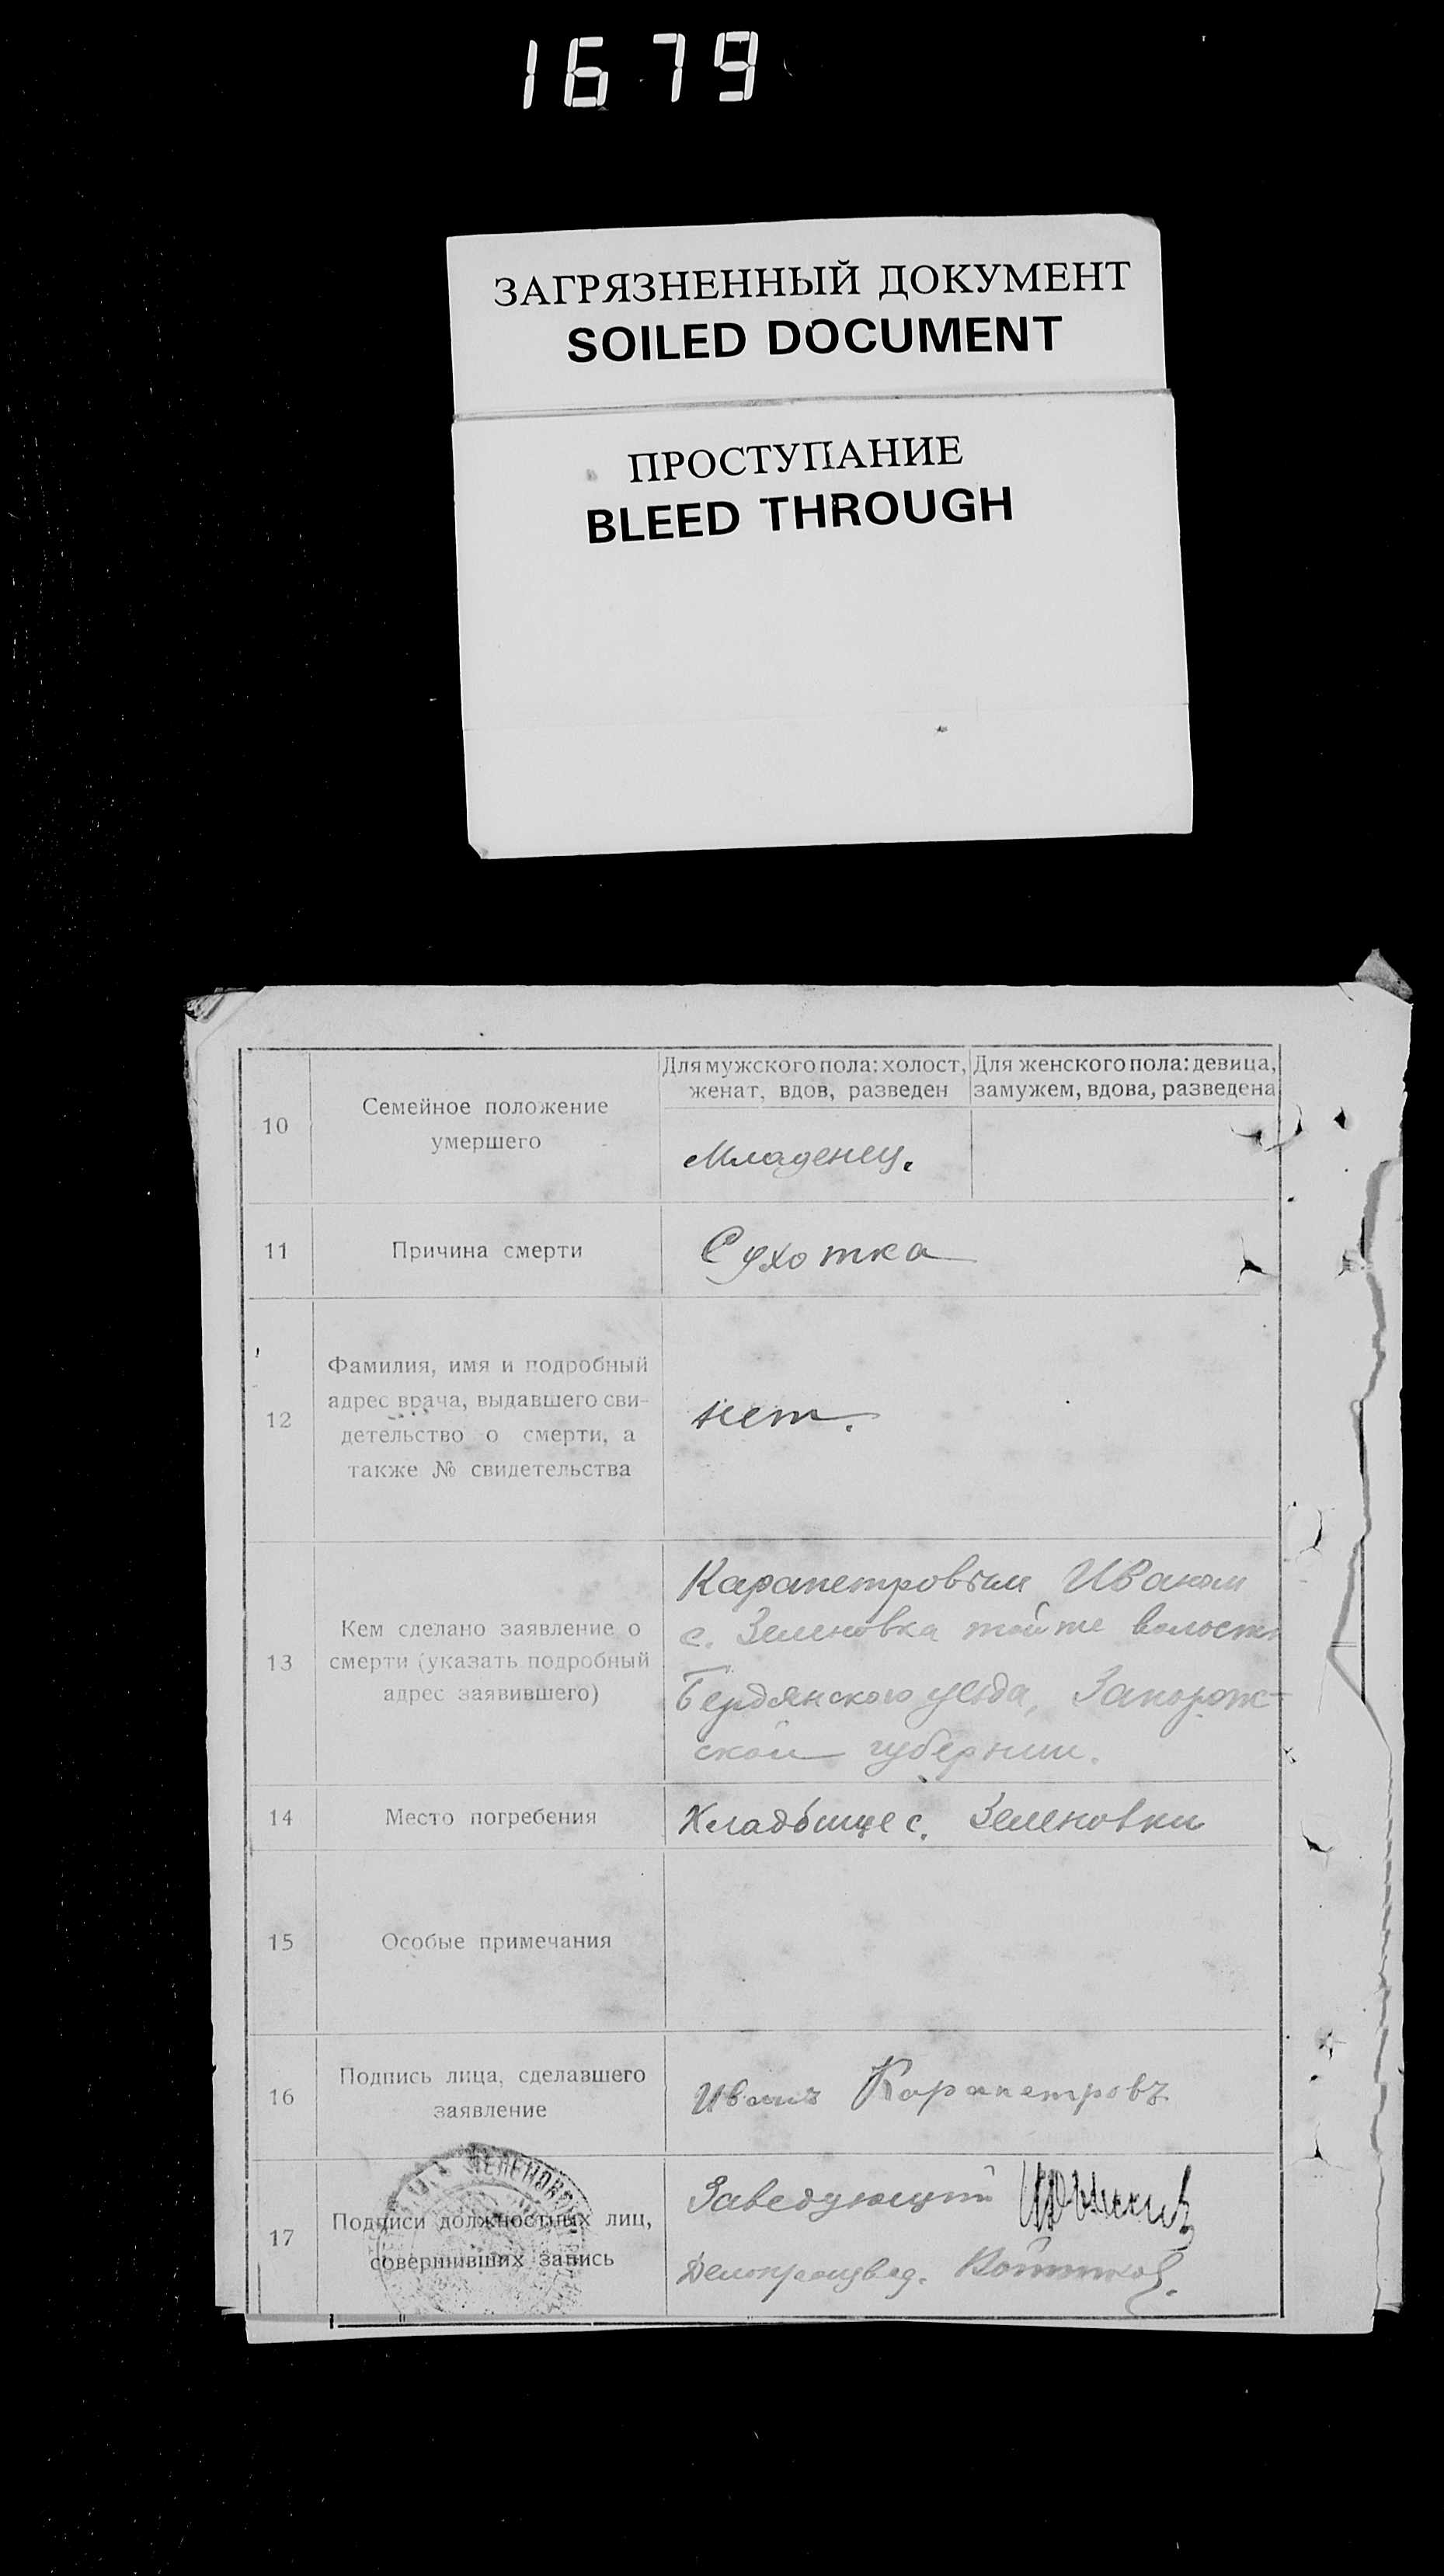 1679
ЗАГРЯЗНЕННЫЙ ДОКУМЕНТ
SOILED DOCUMENT
ПРОСТУПАНИЕ
BLEED THROUGH
10
Семейное положение
умершего
Для мужского пола: холост,
женат, вдов, разведен
Для женского пола: девица,
замужем, вдова, разведена
Младенец.
11
Причина смерти
Сухотка
12
Фамилия, имя и подробный
адрес врача, выдавшего сви-
детельство о смерти, а
также № свидетельства
нет.
13
Кем сделано заявление о
смерти (указать подробный
адрес заявившего)
Карапетровым Иваном
с. Зеленовка тойже волости
Бердянского уезда, Запорож-
ской губернии.
14
Место погребения
Кладбище с. Зеленовки
15
Особые примечания
16
Подпись лица, сделавшего
заявление
Иванъ Карапетровъ
17
Подписи должностных лиц,
совершивших запись
Заведующий
Делопроизвод.